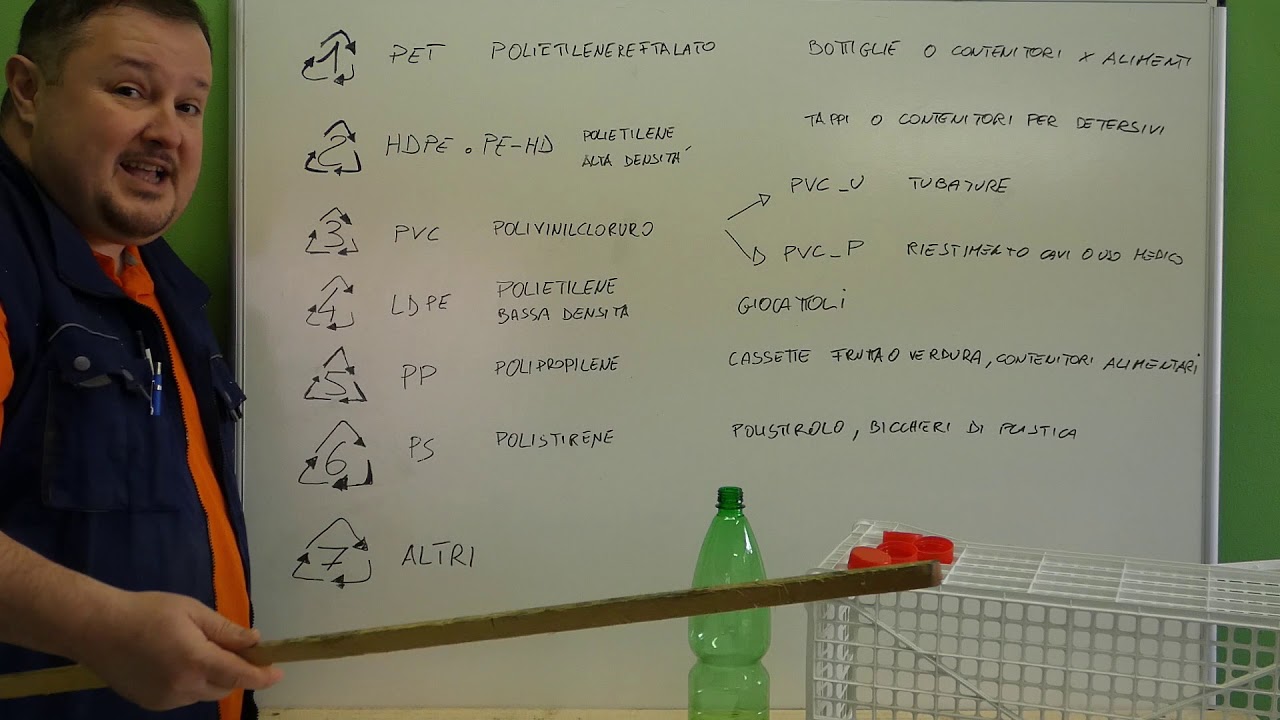 1 PET POLIETILENEREFTALATO BOTTIGLIE O CONTENITORI X ALIMENTI
2 HDPE o PE-HD POLIETILENE ALTA DENSITÁ TAPPI O CONTENITORI PER DETERSIVI
3 PVC POLIVINILCLORURO
PVC_U TUBATURE
PVC_P RIESTIMENTO CAVI O USO MEDICO
4 LDPE POLIETILENE BASSA DENSITA GIOCATTOLI
5 PP POLIPROPILENE CASSETTE FRUTTA O VERDURA, CONTENITORI ALIMENTARI
6 PS POLISTIRENE POLISTIROLO, BICCHIERI DI PLASTICA
7 ALTRI